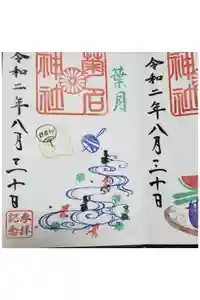 神社
令和二年八月三十日
葉月
菊名
神社
令和二年八月三十日
参拝
記念